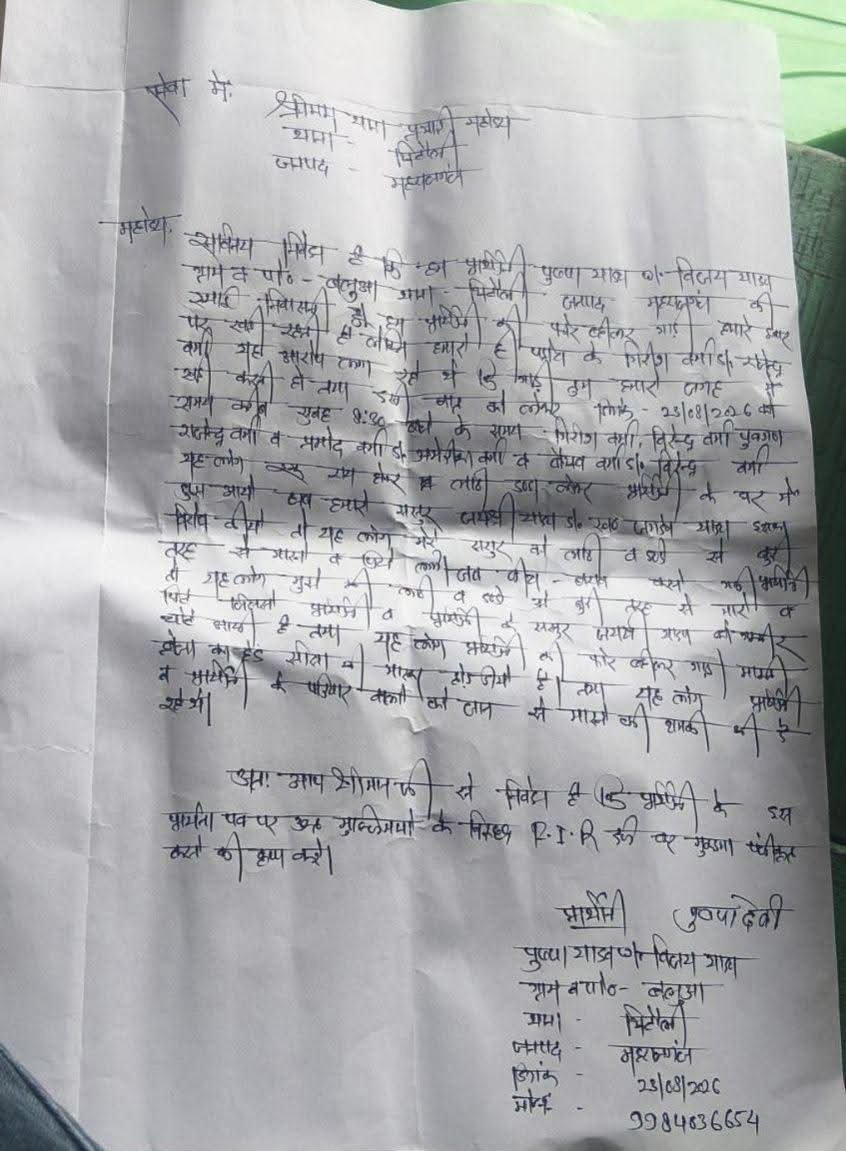 सेवा में,
श्रीमान थाना प्रभारी महोदय
थाना - भिटौली
जनपद - महराजगंज
महोदय,
सविनय निवेदन है कि प्रार्थिनी पुष्पा यादव w/o विजय यादव
ग्राम व पो०- बलुआ थाना- भिटौली जनपद- महराजगंज की
स्थाई निवासी हूँ। हम प्रार्थिनी की फोर व्हीलर गाड़ी हमारे द्वार
पर खड़ी रहती है लेकिन हमारे ही पड़ोस के गिरीश वर्मा s/o राजेन्द्र
वर्मा यह आरोप लगा रहे थे कि गाड़ी तुम हमारी जगह में
खड़ी करती हो तथा इसी बात को लेकर दिनांक - 23/08/2026 को
समय करीब सुबह 8:30 बजे के समय गिरीश वर्मा, विरेन्द्र वर्मा पुत्रगण
राजेन्द्र वर्मा व प्रमोद वर्मा s/o व वैभव वर्मा s/o विरेन्द्र वर्मा
यह लोग एक राय होकर लाठी डण्डा लेकर प्रार्थिनी के घर में
घुस आये जब हमारे ससुर यादव s/o स्व० यादव इसका
विरोध किये तो यह लोग मेरे ससुर को लाठी व डंडे से बुरी
तरह से मारने व पीटने लगे जब बीच-बचाव करने गयी प्रार्थिनी
तो यह लोग मुझे भी लाठी व डण्डे से बुरी तरह से मारे व
पीटे जिससे प्रार्थिनी व प्रार्थिनी के ससुर यादव को गम्भीर
चोटें आयी है तथा यह लोग प्रार्थिनी की फोर व्हीलर गाड़ी मारुती
का शीशा भी मारकर तोड़ दिये है। तथा यह लोग प्रार्थिनी
व प्रार्थिनी के परिवार वालों को जान से मारने की धमकी भी दे
रहे थे।
अतः आप श्रीमान जी से निवेदन है कि प्रार्थिनी के इस
प्रार्थना पत्र पर उक्त मुल्जिमानों के विरुद्ध F.I.R दर्ज कर मुकदमा पंजीकृत
करने की कृपा करें।
प्रार्थिनी पुष्पा देवी
पुष्पा यादव w/o विजय यादव
ग्राम व पो०- बलुआ
थाना - भिटौली
जनपद - महराजगंज
दिनांक - 23/08/2026
मो०नं० - 9984836654